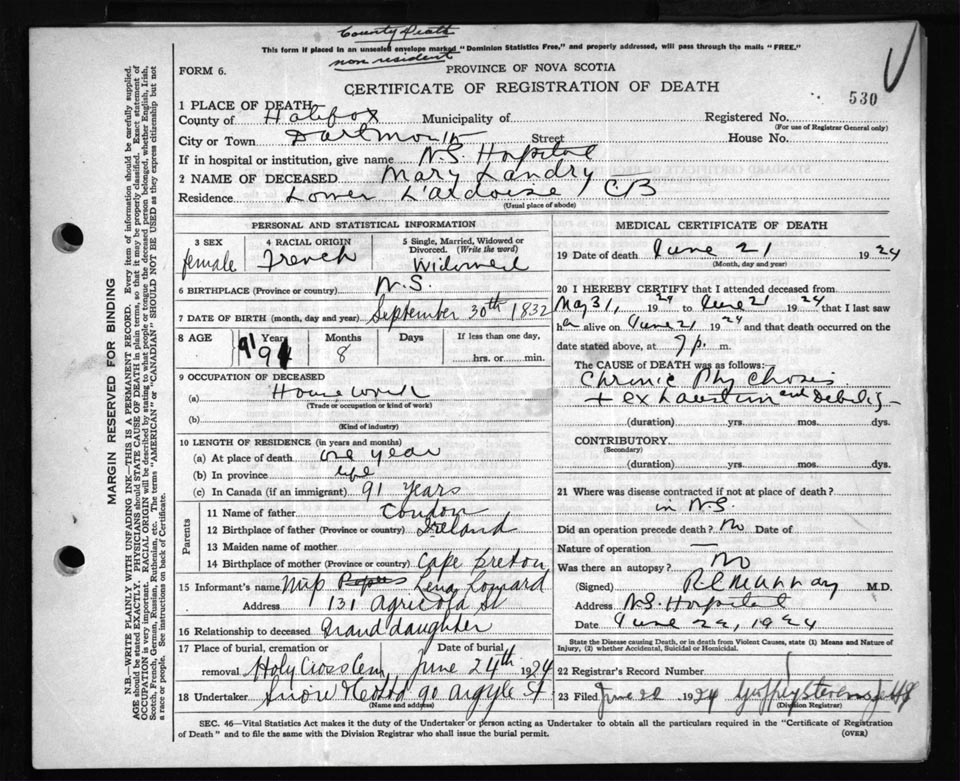 County Death
This form if placed in an unsealed envelope marked "Dominion Statistics Free," and properly addressed, will pass through the mails "FREE."
non resident
FORM 6.
PROVINCE OF NOVA SCOTIA
CERTIFICATE OF REGISTRATION OF DEATH
530
1 PLACE OF DEATH
County of Halifax Municipality of Registered No.
(For use of Registrar General only)
City or Town Dartmouth Street House No.
If in hospital or institution, give name N.S. Hospital
2 NAME OF DECEASED Mary Landry
Residence Lower L'ardoise, CB
(Usual place of abode)
PERSONAL AND STATISTICAL INFORMATION
3 SEX 4 RACIAL ORIGIN 5 Single, Married, Widowed or Divorced. (Write the word)
female French Widowed
6 BIRTHPLACE (Province or country) N.S.
7 DATE OF BIRTH (month, day and year) September 30th 1832
8 AGE Years Months Days If less than one day,
91 8 hrs. or min.
9 OCCUPATION OF DECEASED
(a) Housework
(Trade or occupation or kind of work)
(b)
(Kind of industry)
10 LENGTH OF RESIDENCE (in years and months)
(a) At place of death one year
(b) In province life
(c) In Canada (if an immigrant) 91 years
Parents
11 Name of father Condon
12 Birthplace of father (Province or country) Ireland
13 Maiden name of mother
14 Birthplace of mother (Province or country) Cape Breton
15 Informant's name Lena
Address 131 Agricola St
16 Relationship to deceased Grand daughter
17 Place of burial, cremation or removal Date of burial
Holy Cross Cem June 24th 1924
18 Undertaker Snow 90 Argyle St
(Name and address)
MEDICAL CERTIFICATE OF DEATH
19 Date of death June 21 1924
(Month, day and year)
20 I HEREBY CERTIFY that I attended deceased from
May 31, 1924 to June 21 1924 that I last saw
her alive on June 21 1924 and that death occurred on the
date stated above, at 7 p. m.
The CAUSE of DEATH was as follows:
Chronic Phychosis
+ exhaustion and Debility
(duration) yrs. mos. dys.
CONTRIBUTORY
(Secondary)
(duration) yrs. mos. dys.
21 Where was disease contracted if not at place of death?
in N.S.
Did an operation precede death? No Date of
Nature of operation —
Was there an autopsy? No
(Signed) M.D.
Address N.S. Hospital
Date June 22, 1924
State the Disease causing Death, or in death from Violent Causes, state (1) Means and Nature of Injury, (2) whether Accidental, Suicidal or Homicidal.
22 Registrar's Record Number
23 Filed June 22 1924
(Division Registrar)
SEC. 46—Vital Statistics Act makes it the duty of the Undertaker or person acting as Undertaker to obtain all the particulars required in the "Certificate of Registration
of Death" and to file the same with the Division Registrar who shall issue the burial permit.
(OVER)
MARGIN RESERVED FOR BINDING
N.B.—WRITE PLAINLY WITH UNFADING INK—THIS IS A PERMANENT RECORD. Every item of information should be carefully supplied.
AGE should be stated EXACTLY. PHYSICIANS should STATE CAUSE OF DEATH in plain terms, so that it may be properly classified. Exact statement of
OCCUPATION is very important. RACIAL ORIGIN will be described by stating to what people or tongue the deceased person belonged, whether English, Irish,
Scotch, French, German, Russian, Ruthenian, etc. The terms "AMERICAN" or "CANADIAN" SHOULD NOT BE USED as they express citizenship but not
a race or people. See instructions on back of Certificate.